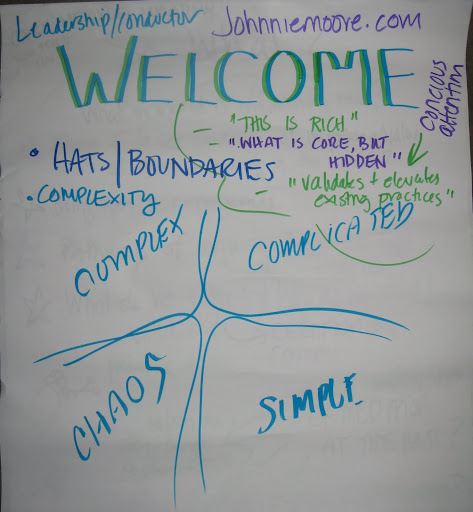 Leadership/conductor
Johnniemoore.com
WELCOME
concious
attention
- "THIS IS RICH"
- "WHAT IS CORE, BUT
HIDDEN"
• HATS/BOUNDARIES
- "validates + elevates
existing practices"
• COMPLEXITY
COMPLEX
COMPLICATED
CHAOS
SIMPLE